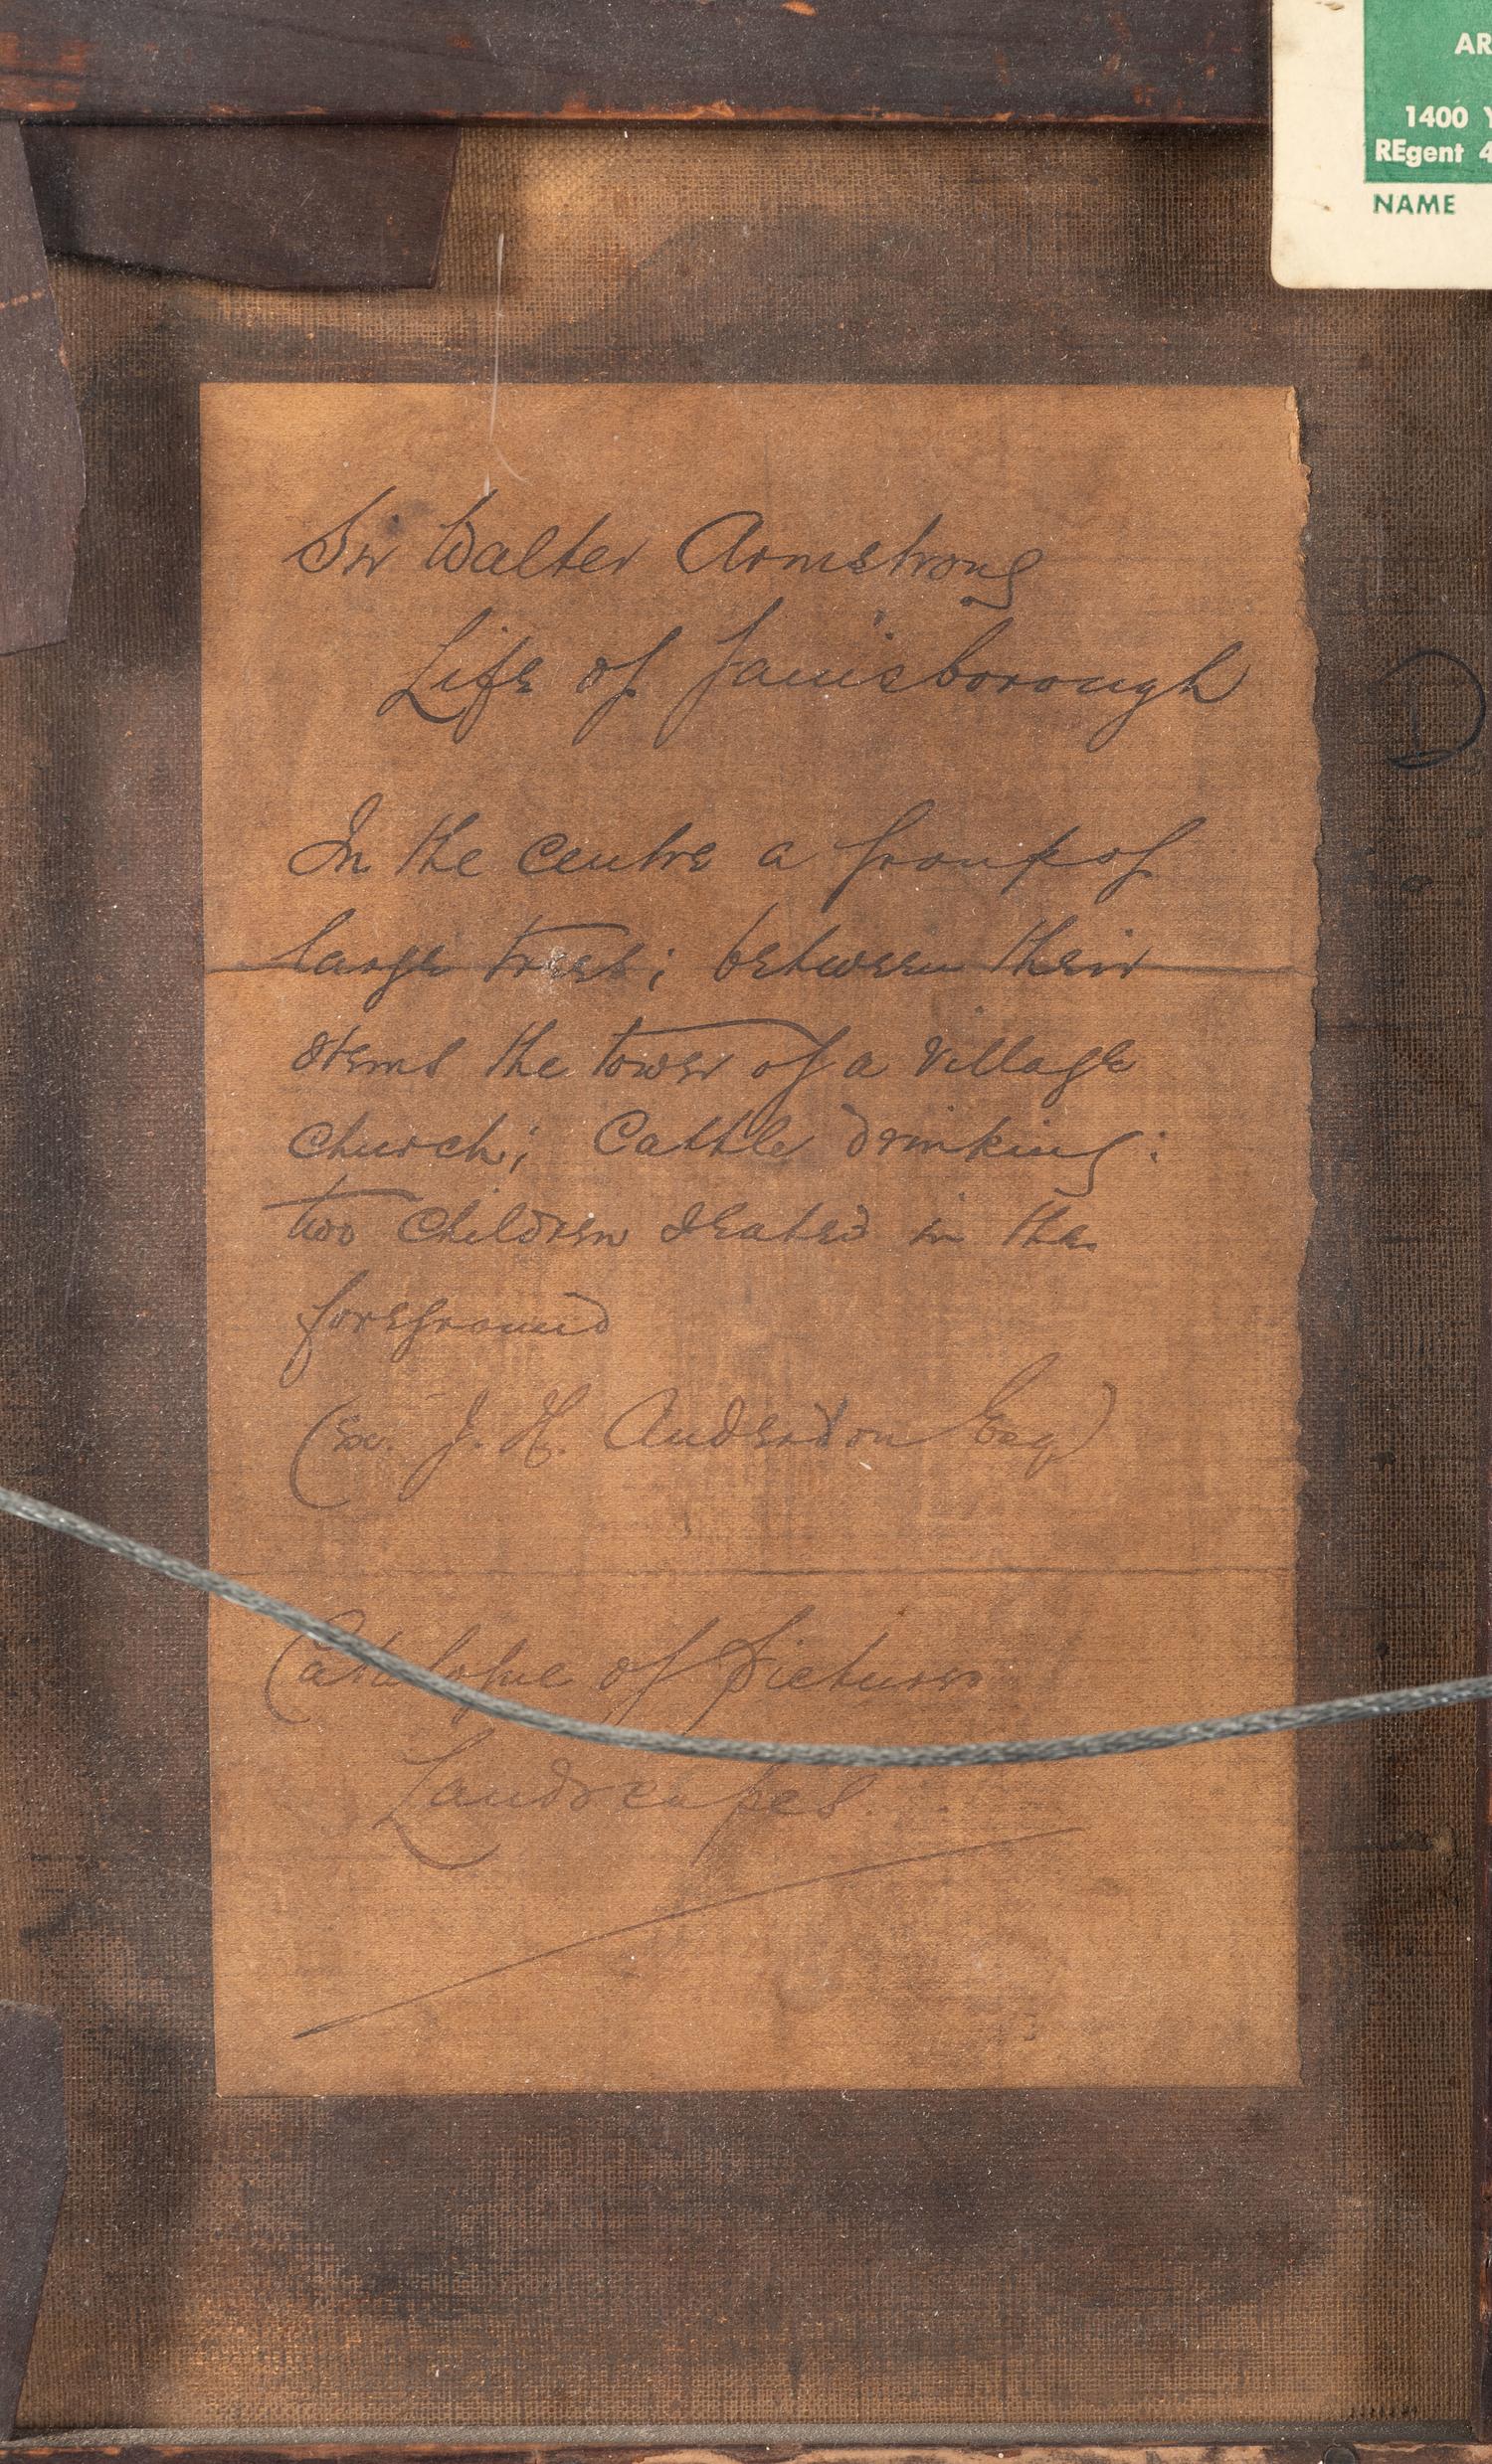 AR
1400 Y
REgent 4
NAME
Sir Walter Armstrong
Life of Gainsborough
D
In the centre a group of
large trees; between their
stems the tower of a village
church; Cattle drinking:
two Children seated in the
foreground
(ex. J. H. Anderdon Esq)
Catalogue of Pictures
Landscapes